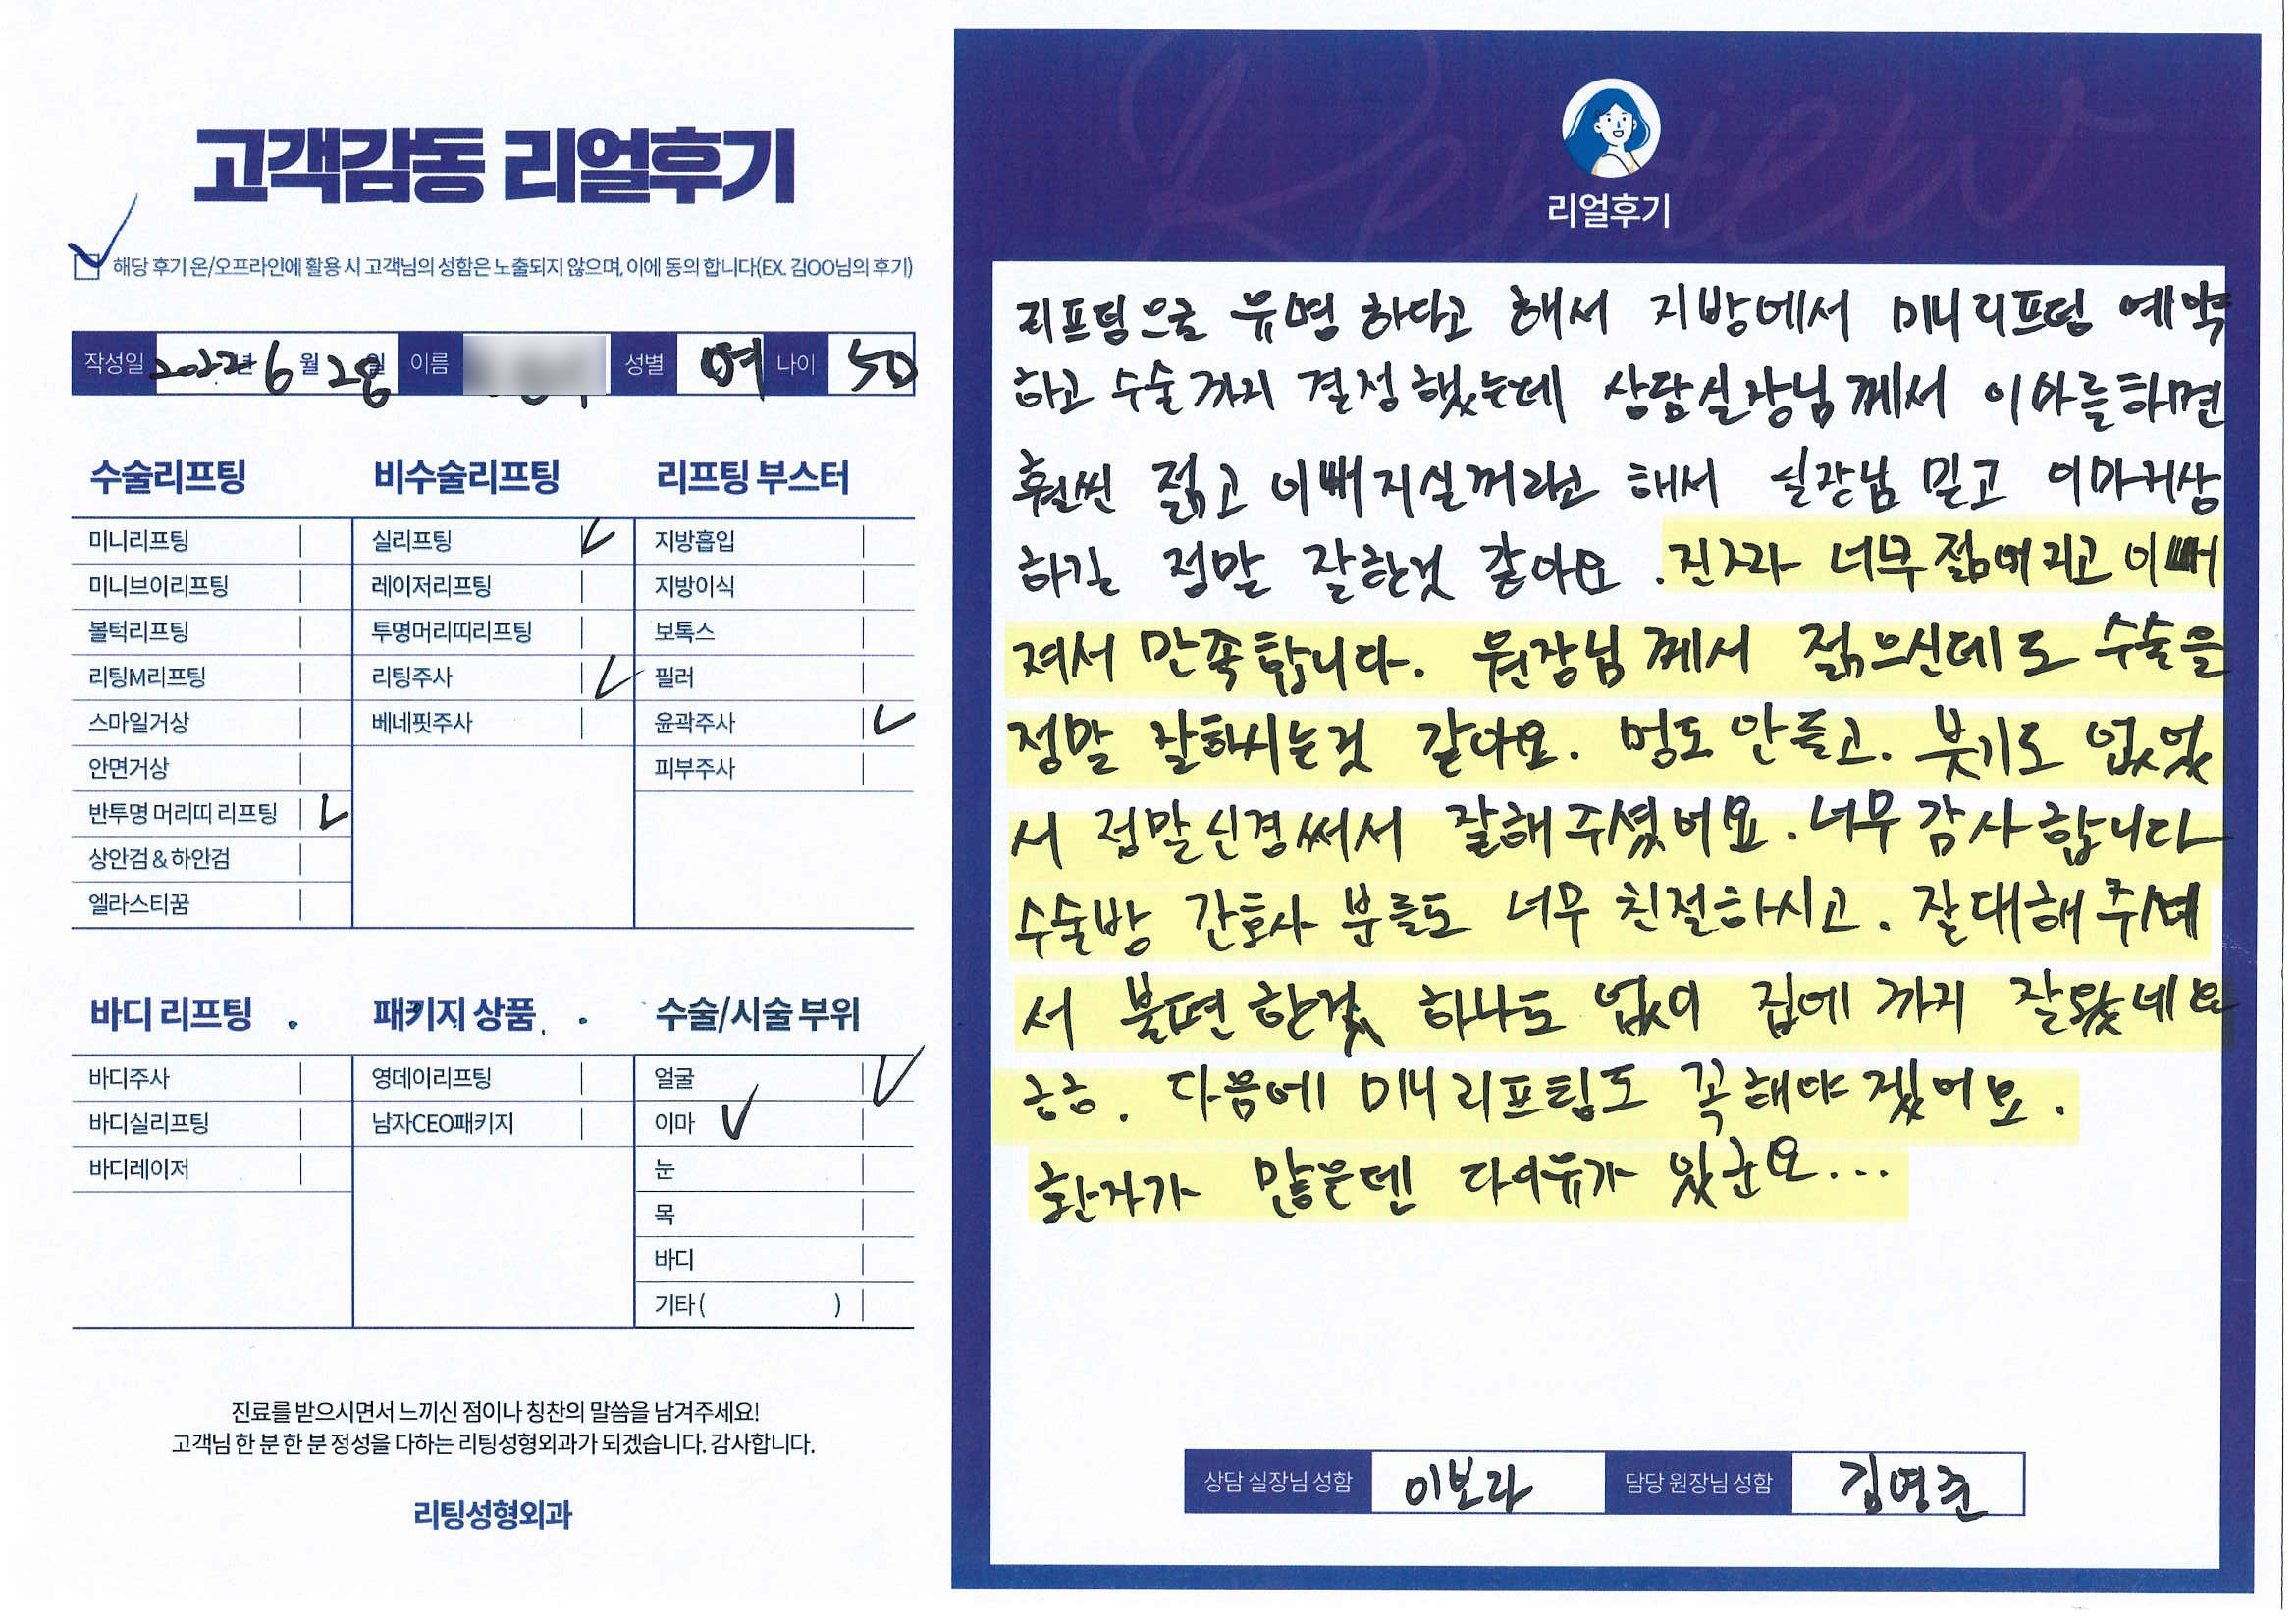 고객감동 리얼후기
해당 후기 온/오프라인에 활용 시 고객님의 성함은 노출되지 않으며, 이에 동의 합니다(EX. 김OO님의 후기)
작성일 2022년 6월 28일 이름 성별 여 나이 50
수술리프팅
미니리프팅
미니브이리프팅
볼턱리프팅
리팅M리프팅
스마일거상
안면거상
반투명 머리띠 리프팅
상안검 & 하안검
엘라스티꿈
비수술리프팅
실리프팅
레이저리프팅
투명머리띠리프팅
리팅주사
베네핏주사
리프팅 부스터
지방흡입
지방이식
보톡스
필러
윤곽주사
피부주사
바디 리프팅
바디주사
바디실리프팅
바디레이저
패키지 상품
영데이리프팅
남자CEO패키지
수술/시술 부위
얼굴
이마
눈
목
바디
기타 ( )
진료를 받으시면서 느끼신 점이나 칭찬의 말씀을 남겨주세요!
고객님 한 분 한 분 정성을 다하는 리팅성형외과가 되겠습니다. 감사합니다.
리팅성형외과
Review
리얼후기
리프팅으로 유명 하다고 해서 지방에서 미니리프팅 예약
하고 수술까지 결정했는데 상담실장님께서 이마를하면
훨씬 젊고 이뻐지실꺼라고 해서 실장님 믿고 이마거상
하길 정말 잘한것 같아요. 진짜 너무 젊어지고 이뻐
져서 만족합니다. 원장님께서 젊으신데도 수술을
정말 잘하시는것 같아요. 멍도 안들고. 붓기도 없었
서 정말신경써서 잘해주셨어요. 너무 감사합니다
수술방 간호사 분들도 너무 친절하시고. 잘대해주셔
서 불편한것 하나도 없이 집에 까지 잘왔네요
ㅎㅎ. 다음에 미니리프팅도 꼭해야겠어요.
환자가 많은덴 다이유가 있군요...
상담 실장님 성함 이보라 담당 원장님 성함 김영준